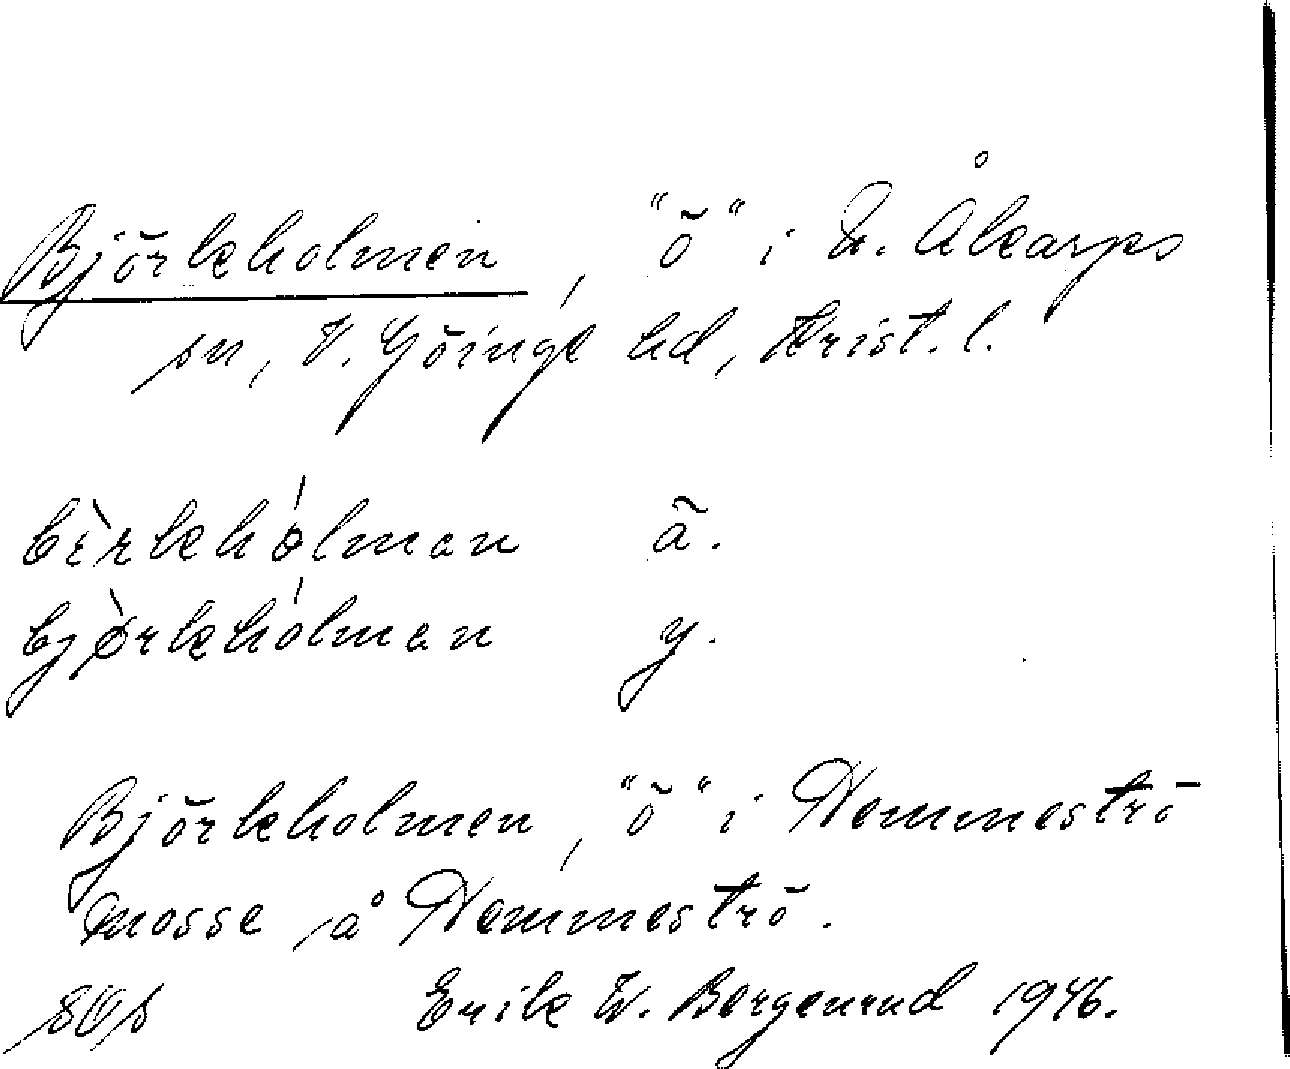 Björkholmen, "ö" i N. Åkarps
sn, V. Göinge hd, Krist. l.
bìrkehólman ä.
bjòrkehólman y.
Björkeholmen, "ö" i Nemmeströ
mosse å Nemmeströ.
Erik W. Bergenrud 1946.